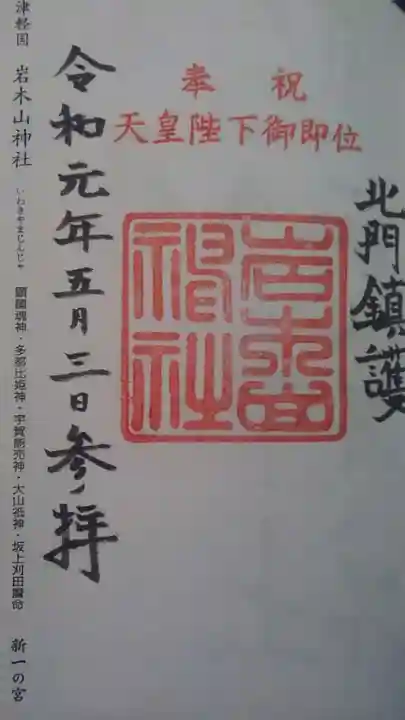 北門鎮護
奉祝
天皇陛下御即位
岩木山
神社
令和元年五月三日参拝
津軽国 岩木山神社 いわきやまじんじゃ 顕國魂神・多都比姫神・宇賀能売神・大山祗神・坂上刈田麿命 新一の宮